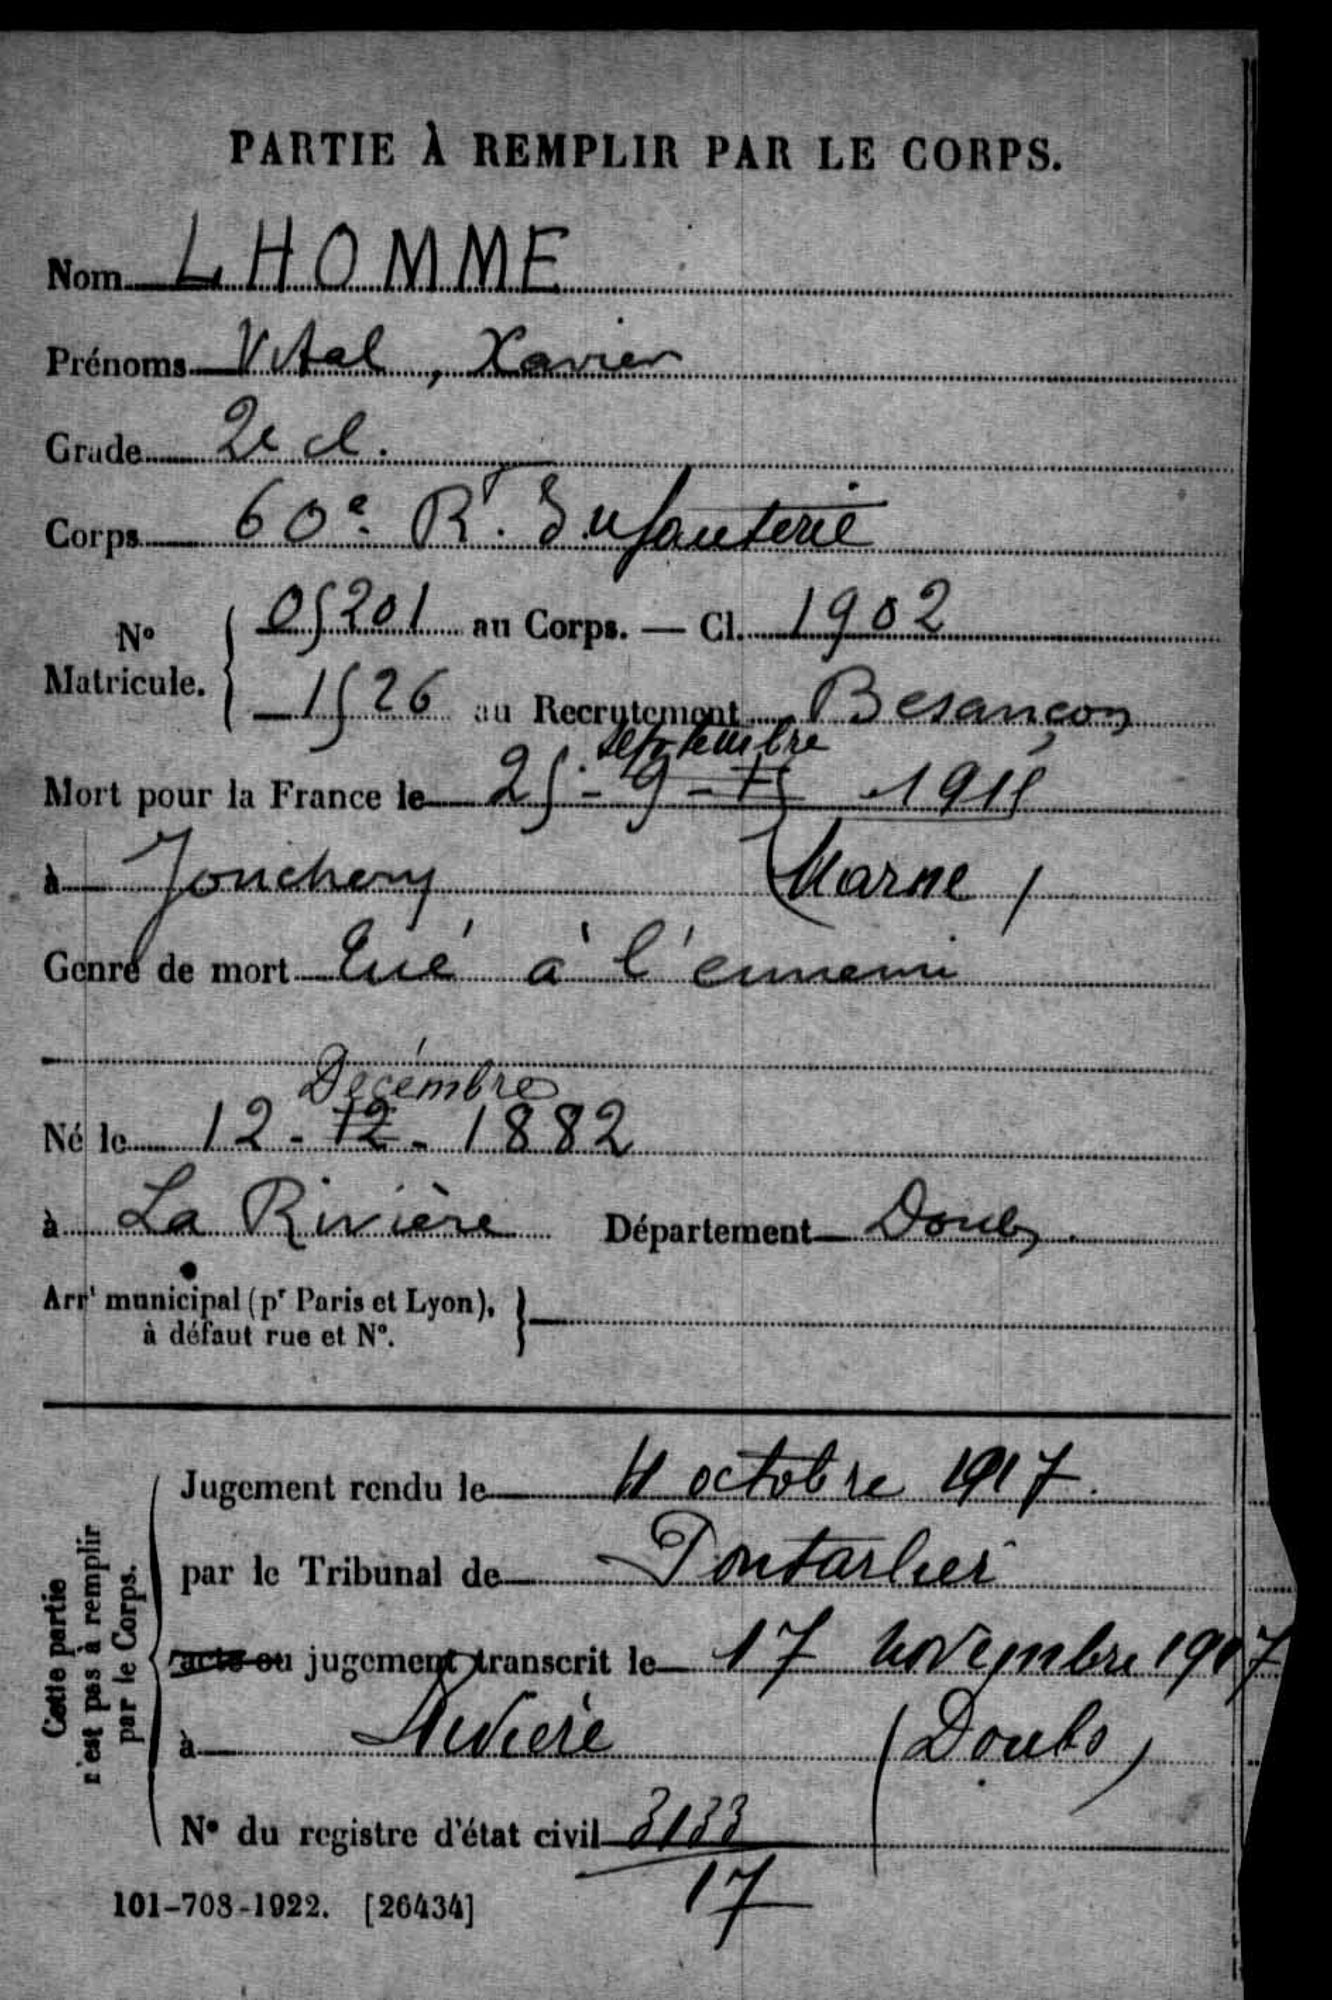 PARTIE À REMPLIR PAR LE CORPS.
Nom LHOMME
Prénoms Vital, Xavier
Grade 2e cl.
Corps 60e R. Infanterie
N° Matricule. { 05201 au Corps. — Cl. 1902
1526 au Recrutement Besançon
septembre
Mort pour la France le 25 - 9 - 15 1915
à Jonchery (Marne)
Genre de mort Tué à l'ennemi
Décembre
Né le 12 - 12 - 1882
à La Rivière Département Doubs.
Arrt municipal (pr Paris et Lyon),
à défaut rue et N°. }
Cette partie n'est pas à remplir par le Corps.
Jugement rendu le octobre 1917.
par le Tribunal de Pontarlier
acte ou jugement transcrit le 17 novembre 1917
à Rivière (Doubs)
N° du registre d'état civil 3133
17
101-708-1922. [26434]